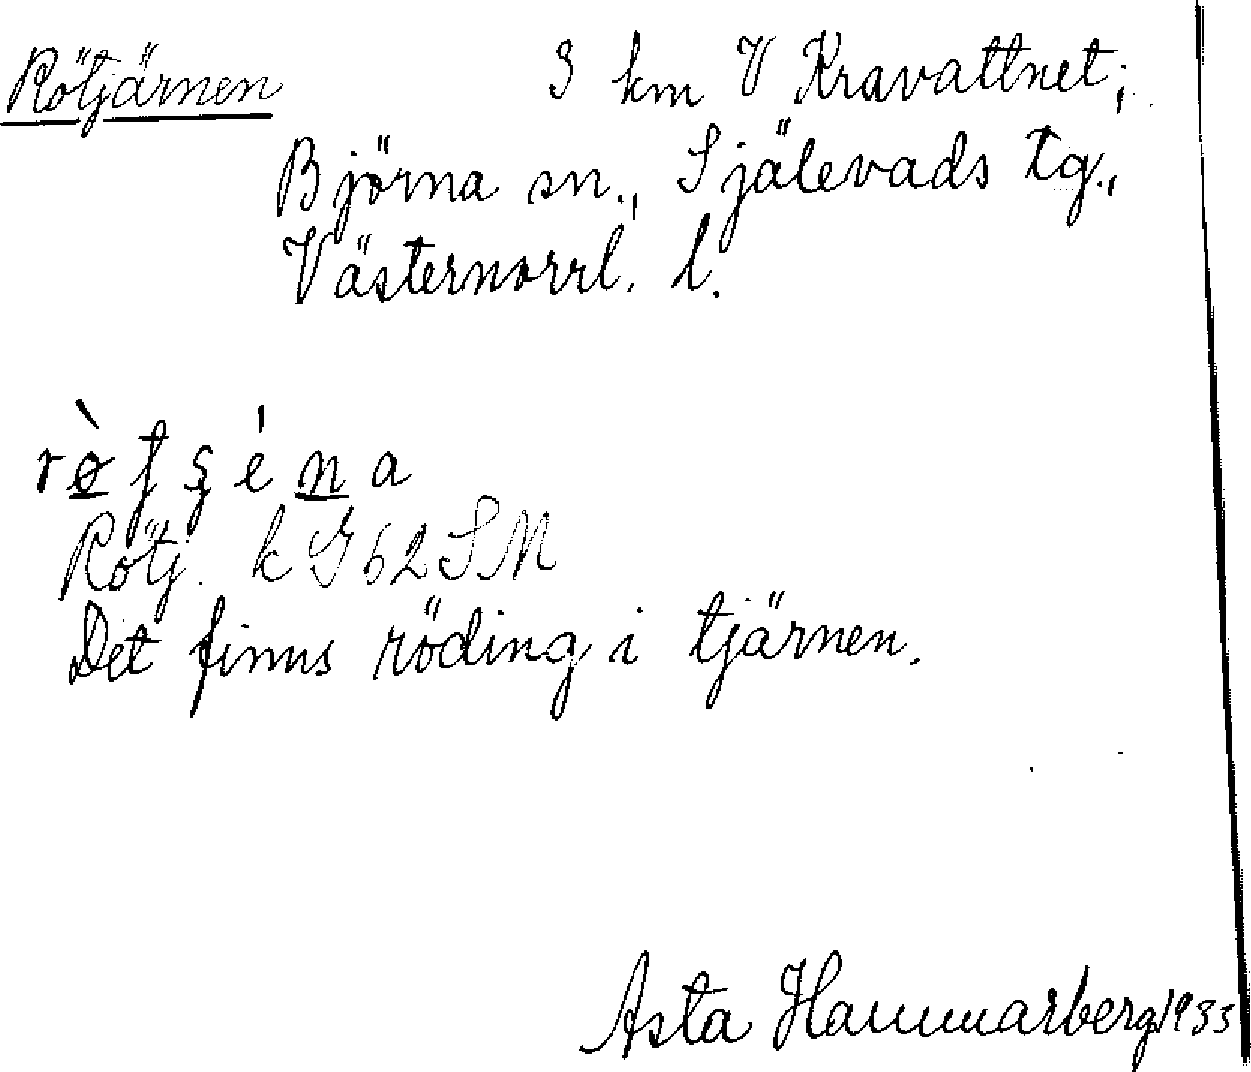 Rötjärnen 3 km V Kravattnet;
Björna sn., Själevads tg.,
Västernorrl. l.
Rötj. k G 62 SM
Det finns röding i tjärnen.
Asta Hammarberg 1933